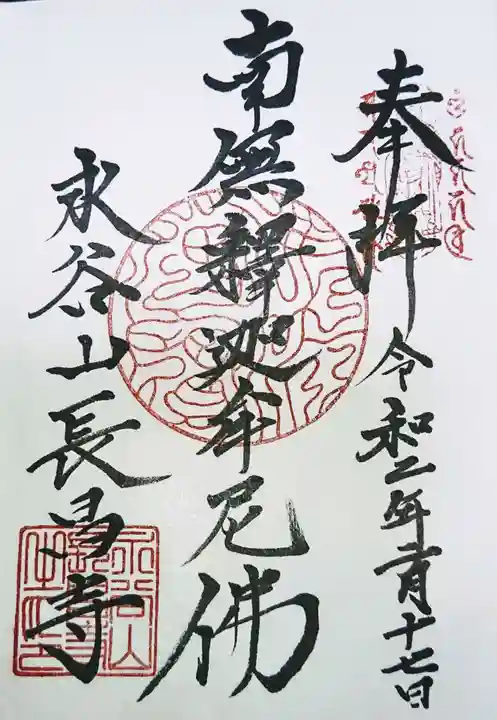 奉拝
令和二年二月十七日
南無釋迦牟尼佛
永谷山長昌寺